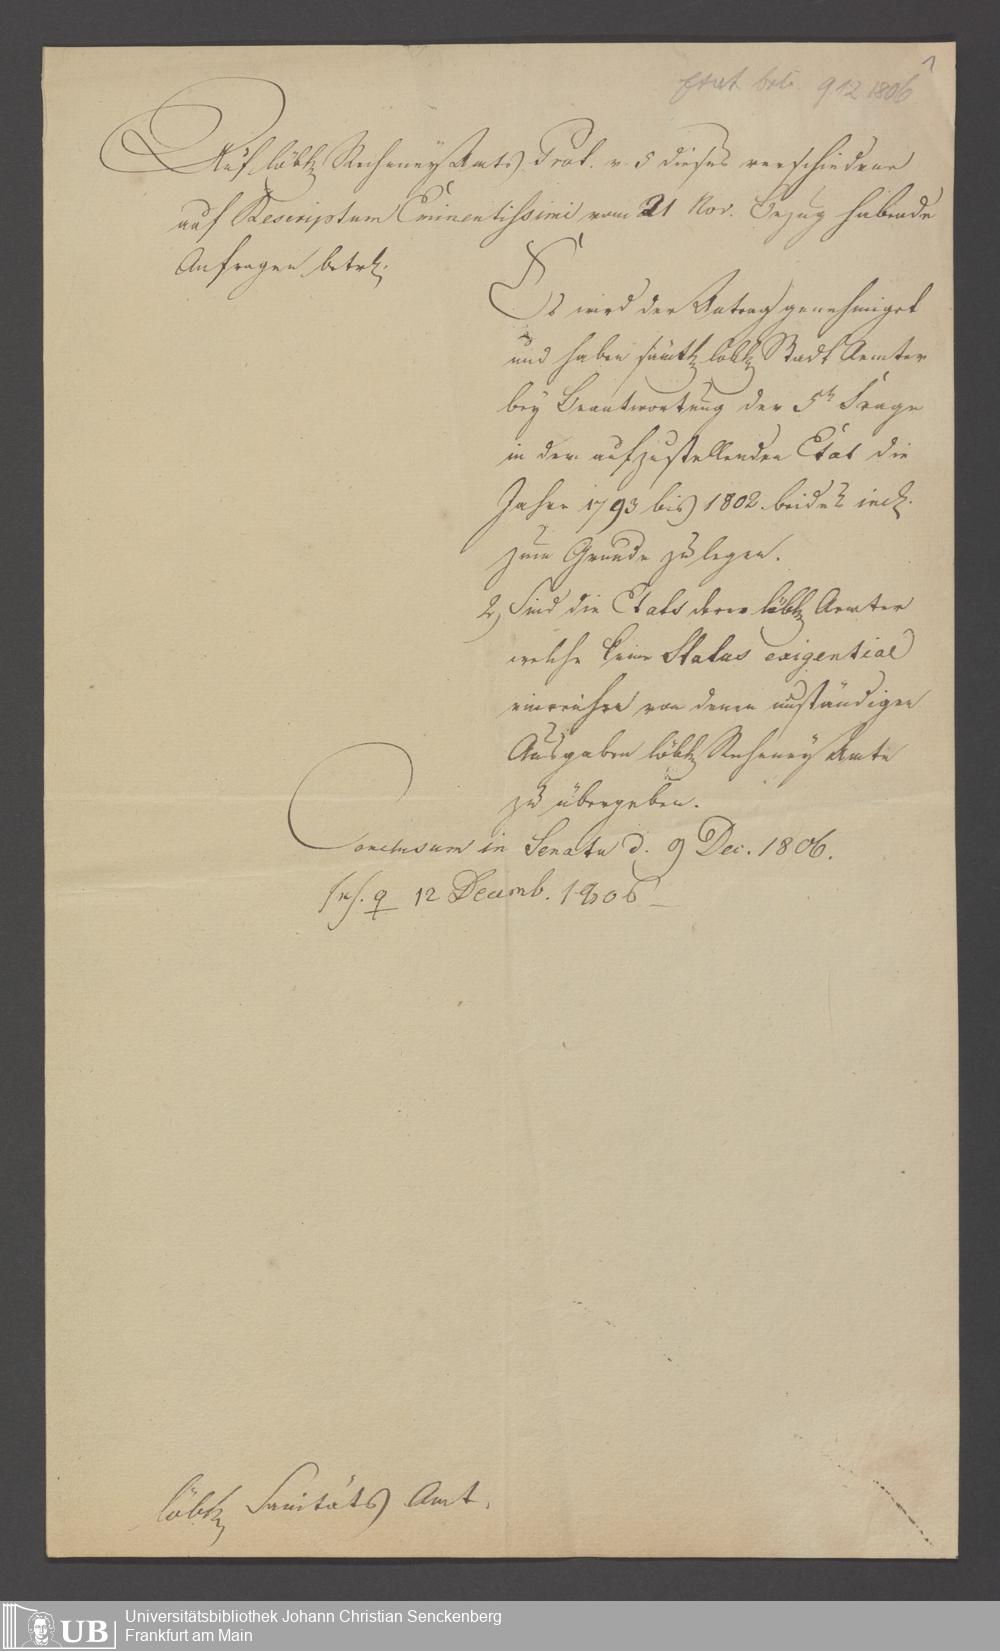 1
Etat betr. 9.12 1806
Auf löbl. Recheney Amts Prot. v. 5 dieses verschiedene
auf Rescriptum Eminentissimi vom 21 Nov. Bezug habende
Anfragen betrl.
Es wird der Antrag genehmiget
und haben sämtl. löbl. Stadt Aemter
bey Beantwortung der 5n Frage
in dem aufzustellenden Etat die
Jahre 1793 bis 1802 beide incl.
zum Grunde zu legen.
2) sind die Etats derer löbl. Aemter
welche keine Status exigentiae
einreichen von denen unständigen
Ausgaben löbl. Recheney Amte
zu übergeben.
Conclusum in Senatu d. 9 Dec. 1806.
12 Decemb. 1806
löbl. Sanitäts Amt.
UB
Universitätsbibliothek Johann Christian Senckenberg
Frankfurt am Main